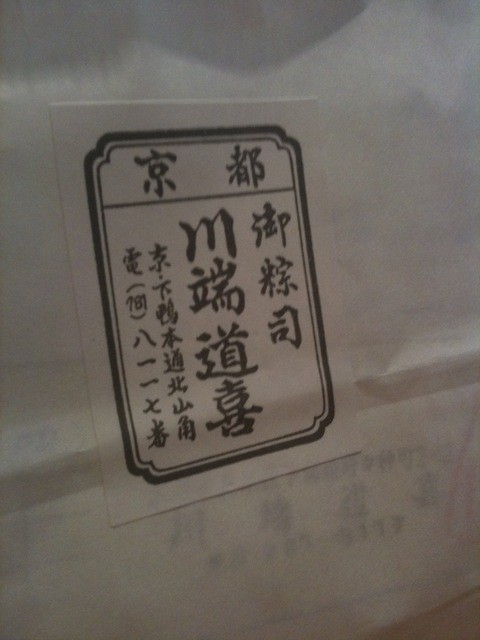 京都
御粽司
川端道喜
京・下鴨本通北山角
電(781)八一一七番